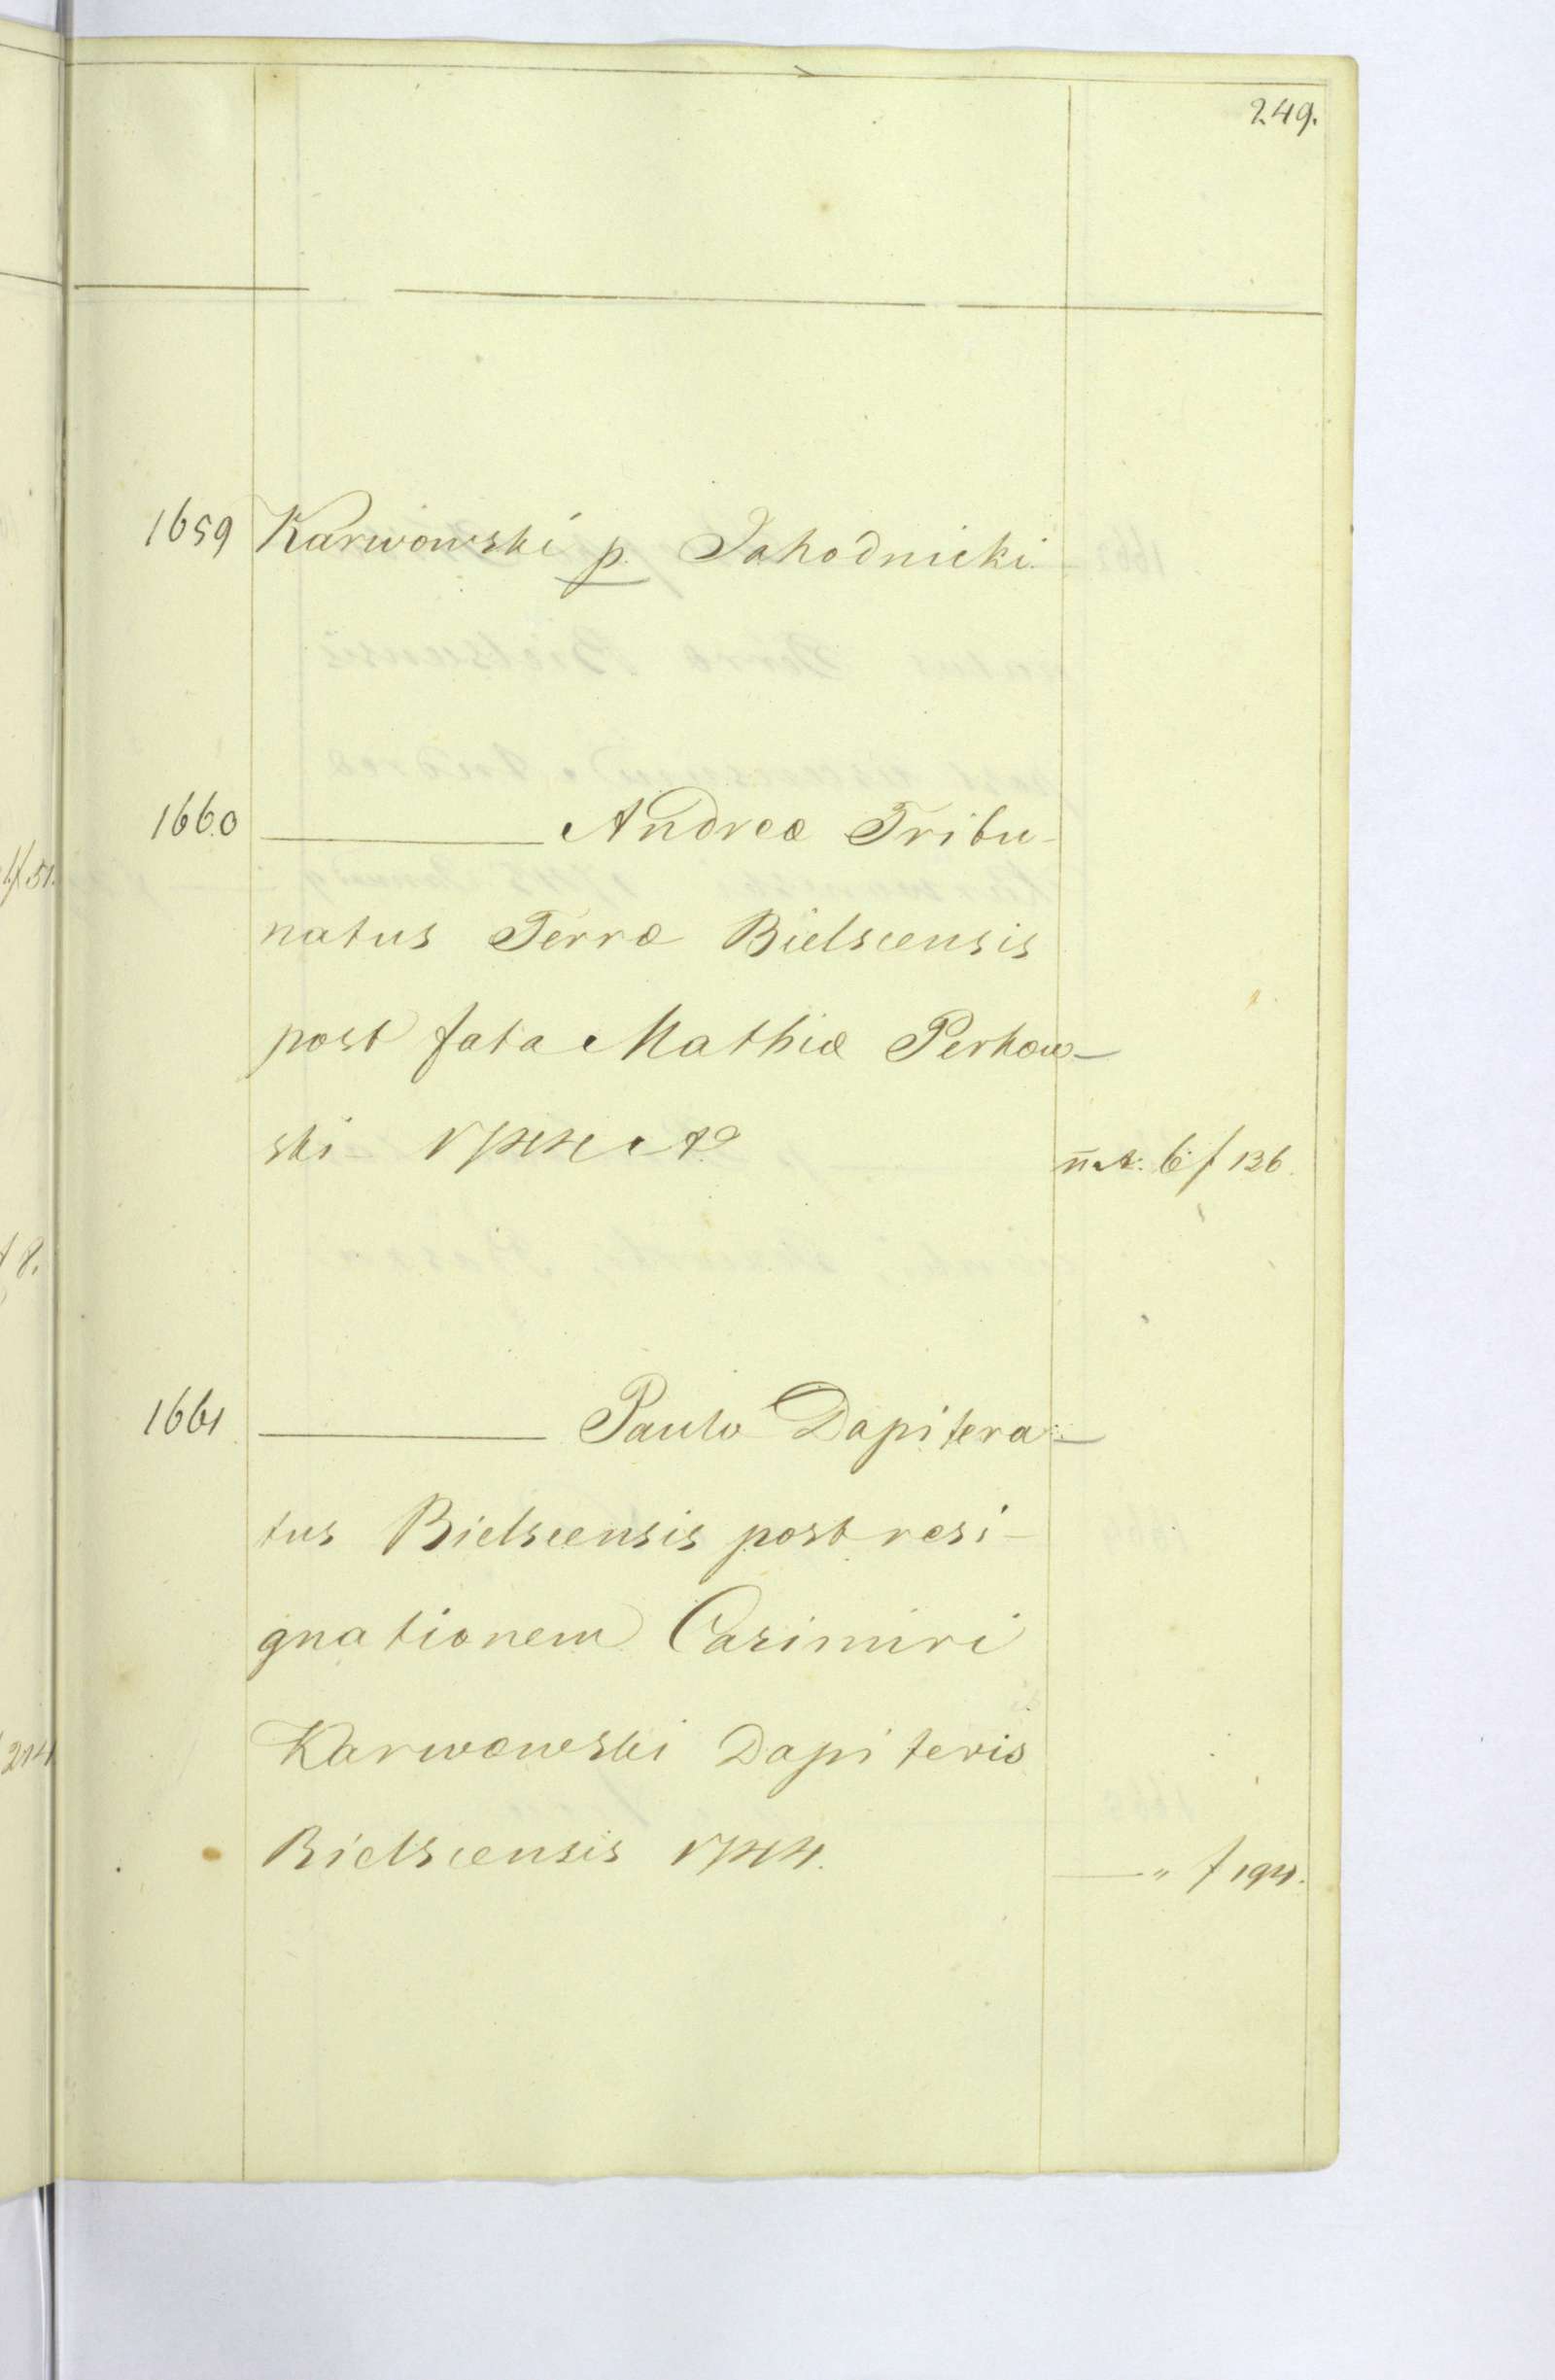 249.
1659 Karwowski p. Jahodnicki
1660 ——— Andreæ Tribu-
natus Terræ Bielscensis
post fata Mathiæ Perkow-
ski 1744 Aº n. A: 6 f 136.
1661 ——— Paulo Dapifera-
tus Bielscensis post resi-
gnationem Casimiri
Karwowski Dapiferis
Bielscensis 1744. ——— " f 194.